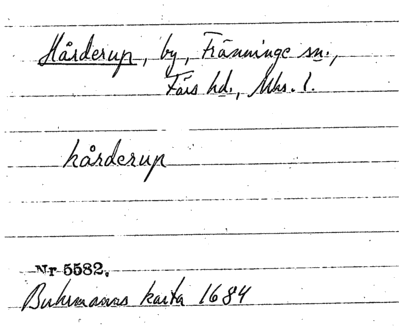 Hårderup, by, Fränninge sn.,
Färs hd., Mhs. l.
hårderup
Nr 5582.
Buhrmanns karta 1684